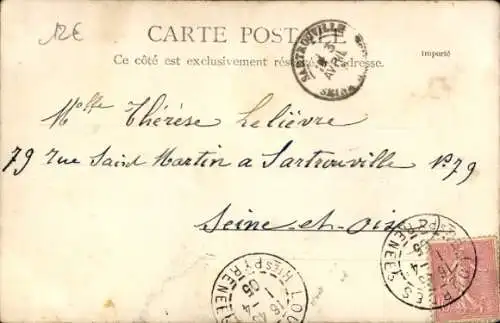 12€
CARTE POSTALE
Ce côté est exclusivement réservé à l'adresse.
importé
SARTROUVILLE
3
AVRIL
Melle Thérèse Lelièvre
79 rue Saint Martin a Sartrouville No 79
Seine-et-Oise
LOURDES
Htes PYRENEES
14
05
LOURDES
Htes PYRENEES
14
05